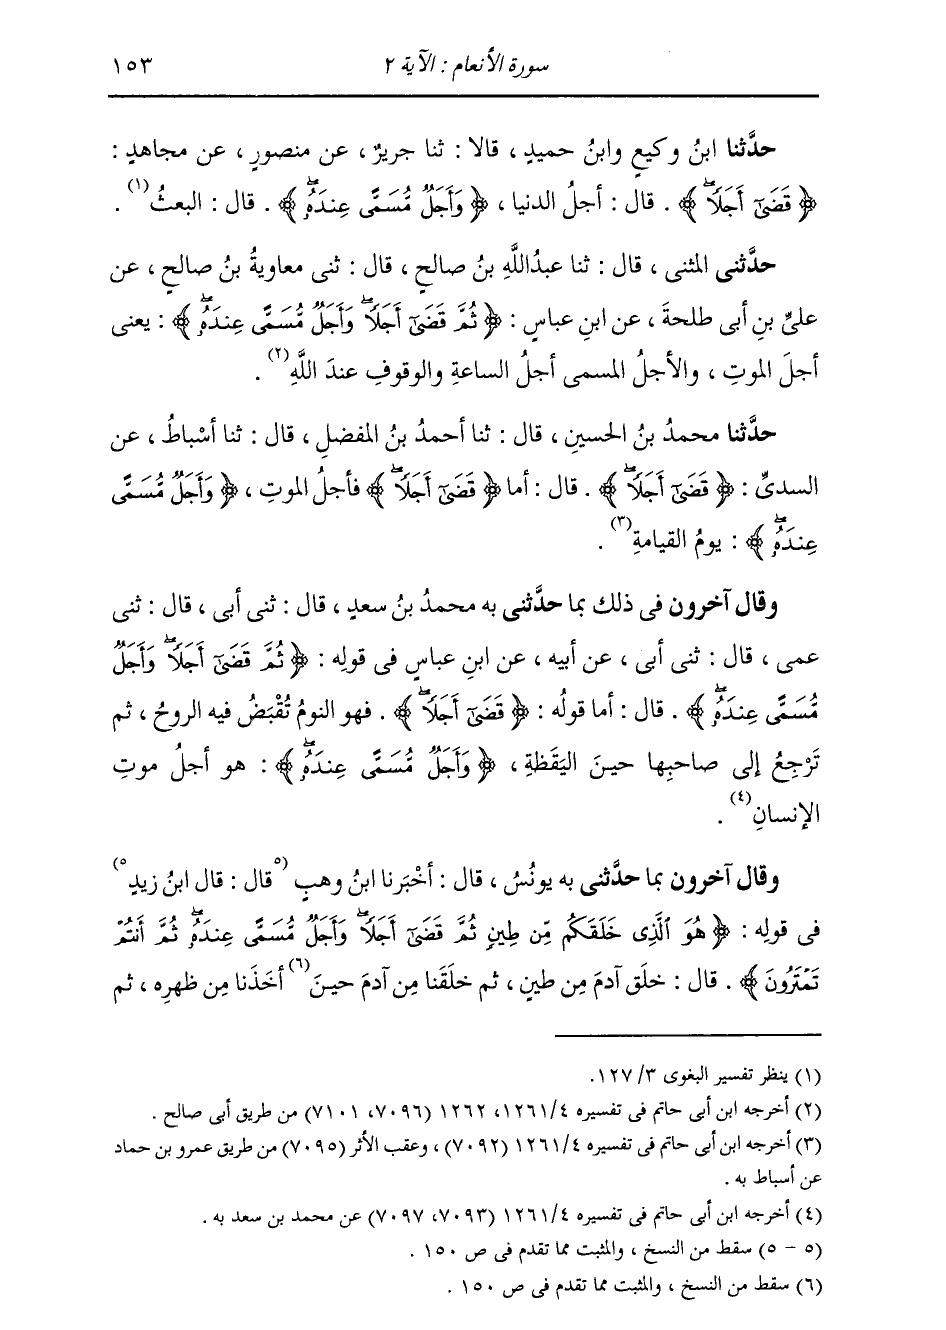 سورة الأنعام : الآية ٢
١٥٣
حدَّثنا ابنُ وكيعٍ وابنُ حميدٍ ، قالا : ثنا جريرٌ ، عن منصورٍ ، عن مجاهدٍ :
﴿ قَضَىٰٓ أَجَلًاۖ ﴾ . قال : أجلُ الدنيا ، ﴿ وَأَجَلٌ مُّسَمًّى عِندَهُۥۖ ﴾ . قال : البعثُ(١) .
حدَّثنى المثنى ، قال : ثنا عبدُاللَّهِ بنُ صالحٍ ، قال : ثنى معاويةُ بنُ صالحٍ ، عن
علىِّ بنِ أبى طلحةَ ، عن ابنِ عباسٍ : ﴿ ثُمَّ قَضَىٰٓ أَجَلًاۖ وَأَجَلٌ مُّسَمًّى عِندَهُۥۖ ﴾ : يعنى
أجلَ الموتِ ، والأجلُ المسمى أجلُ الساعةِ والوقوفِ عندَ اللَّهِ(٢) .
حدَّثنا محمدُ بنُ الحسينِ ، قال : ثنا أحمدُ بنُ المفضلِ ، قال : ثنا أسْباطُ ، عن
السدىِّ : ﴿ قَضَىٰٓ أَجَلًاۖ ﴾ . قال : أما ﴿ قَضَىٰٓ أَجَلًاۖ ﴾ فأجلُ الموتِ ، ﴿ وَأَجَلٌ مُّسَمًّى
عِندَهُۥۖ ﴾ : يومُ القيامةِ(٣) .
وقال آخرون فى ذلك بما حدَّثنى به محمدُ بنُ سعدٍ ، قال : ثنى أبى ، قال : ثنى
عمى ، قال : ثنى أبى ، عن أبيه ، عن ابنِ عباسٍ فى قولِه : ﴿ ثُمَّ قَضَىٰٓ أَجَلًاۖ وَأَجَلٌ
مُّسَمًّى عِندَهُۥۖ ﴾ . قال : أما قولُه : ﴿ قَضَىٰٓ أَجَلًاۖ ﴾ . فهو النومُ تُقْبَضُ فيه الروحُ ، ثم
تَرْجِعُ إلى صاحبِها حينَ اليَقَظةِ ، ﴿ وَأَجَلٌ مُّسَمًّى عِندَهُۥۖ ﴾ : هو أجلُ موتِ
الإنسانِ(٤) .
وقال آخرون بما حدَّثنى به يونُسُ ، قال : أخْبَرنا ابنُ وهبٍ (٥قال : قال ابنُ زيدٍ٥)
فى قولِه : ﴿ هُوَ ٱلَّذِى خَلَقَكُم مِّن طِينٍ ثُمَّ قَضَىٰٓ أَجَلًاۖ وَأَجَلٌ مُّسَمًّى عِندَهُۥۖ ثُمَّ أَنتُمْ
تَمْتَرُونَ ﴾ . قال : خلَق آدمَ مِن طينٍ ، ثم خلَقَنا مِن آدمَ حينَ(٦) أخَذَنا مِن ظهرِه ، ثم
(١) ينظر تفسير البغوى ٣/ ١٢٧.
(٢) أخرجه ابن أبى حاتم فى تفسيره ٤/ ١٢٦١، ١٢٦٢ (٧٠٩٦، ٧١٠١) من طريق أبى صالح .
(٣) أخرجه ابن أبى حاتم فى تفسيره ٤/ ١٢٦١ (٧٠٩٢) ، وعقب الأثر (٧٠٩٥) من طريق عمرو بن حماد
عن أسباط به .
(٤) أخرجه ابن أبى حاتم فى تفسيره ٤/ ١٢٦١ (٧٠٩٣، ٧٠٩٧) عن محمد بن سعد به .
(٥ - ٥) سقط من النسخ ، والمثبت مما تقدم فى ص ١٥٠ .
(٦) سقط من النسخ ، والمثبت مما تقدم فى ص ١٥٠ .